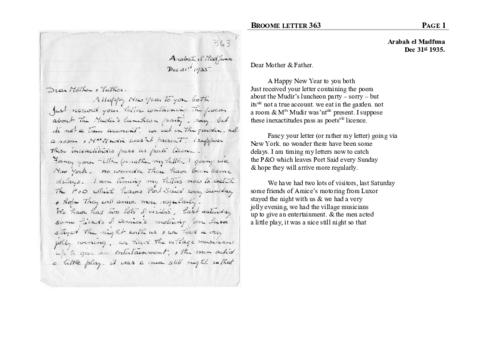 363
Arabah el Madfuna
Dec 31st 1935.
Dear Mother & Father.
A Happy New Year to you both
Just received your letter containing the poem
about the Mudir's luncheon party, sorry – but
its not a true account. we eat in the garden. not
a room & Mme Mudir was'nt present. I suppose
these inexactitudes pass as poets licence.
Fancy your letter (or rather my letter) going via
New York. no wonder there have been some
delays. I am timing my letters now to catch
the P&O which leaves Port Said every Sunday
& hope they will arrive more regularly.
We have had two lots of visitors, last Saturday
some friends of Amice's motoring from Luxor
stayed the night with us & we had a very
jolly evening, we had the village musicians
up to give an entertainment, & the men acted
a little play, it was a nice still night so that
BROOME LETTER 363 PAGE 1
Arabah el Madfuna
Dec 31st 1935.
Dear Mother & Father.
A Happy New Year to you both
Just received your letter containing the poem
about the Mudir's luncheon party – sorry – but
its not a true account. we eat in the garden. not
a room & Mme Mudir was'nt present. I suppose
these inexactitudes pass as poets licence.
Fancy your letter (or rather my letter) going via
New York. no wonder there have been some
delays. I am timing my letters now to catch
the P&O which leaves Port Said every Sunday
& hope they will arrive more regularly.
We have had two lots of visitors, last Saturday
some friends of Amice's motoring from Luxor
stayed the night with us & we had a very
jolly evening, we had the village musicians
up to give an entertainment. & the men acted
a little play, it was a nice still night so that